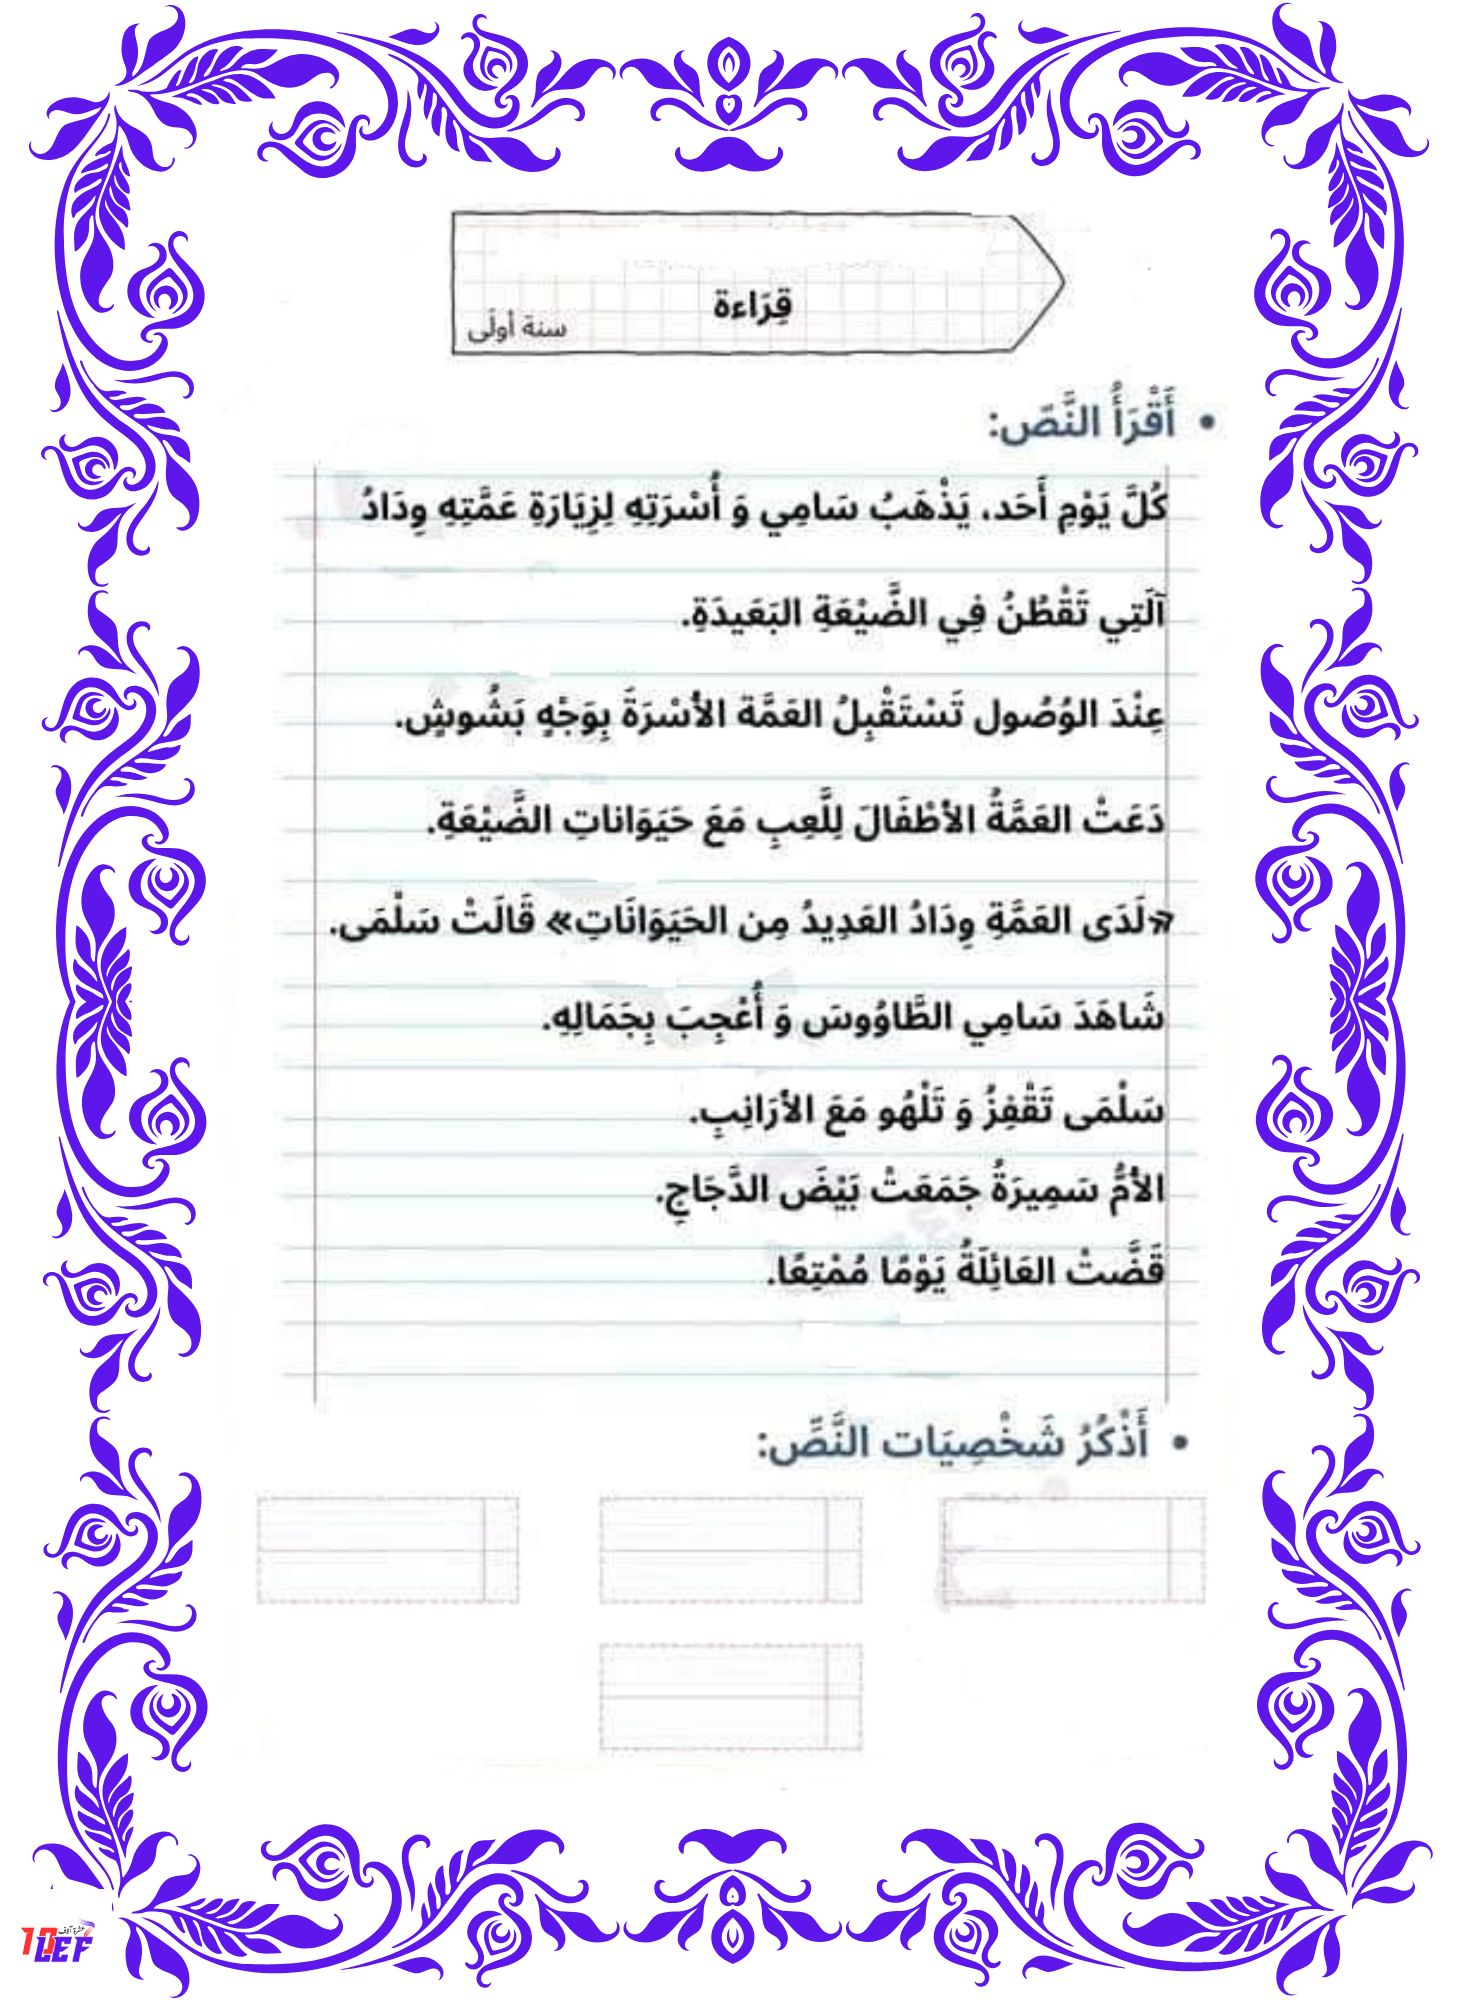 قِرَاءة
سنة أولَى
• أَقْرَأُ النَّصَّ:
كُلَّ يَوْمِ أَحَد، يَذْهَبُ سَامِي وَ أُسْرَتِهِ لِزِيَارَةِ عَمَّتِهِ وِدَادُ
آلَتِي تَقْطُنُ فِي الضَّيْعَةِ البَعَيدَةِ.
عِنْدَ الوُصُول تَسْتَقْبِلُ العَمَّة الأسْرَةَ بِوَجْهٍ بَشُوشٍ.
دَعَتْ العَمَّةُ الأطْفَالَ لِلَّعِبِ مَعَ حَيَوَاناتِ الضَّيْعَةِ.
«لَدَى العَمَّةِ وِدَادُ العَدِيدُ مِن الحَيَوَانَاتِ» قَالَتْ سَلْمَى.
شَاهَدَ سَامِي الطَّاوُوسَ وَ أُعْجِبَ بِجَمَالِهِ.
سَلْمَى تَقْفِزُ وَ تَلْهُو مَعَ الأرَانِبِ.
الأمُّ سَمِيرَةُ جَمَعَتْ بَيْضَ الدَّجَاجِ.
قَضَّتْ العَائِلَةُ يَوْمًا مُمْتِعًا.
• أَذْكُرُ شَخْصِيَات النَّصِّ:
10
عشرة آلاف
LEF